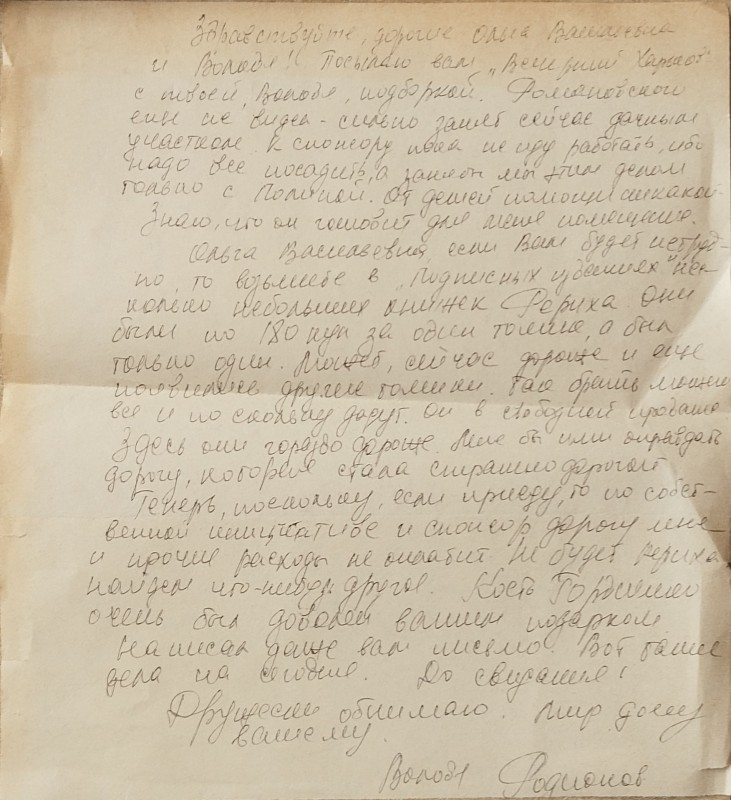 Здравствуйте, дорогие Ольга Васильевна
и Володя! Посылаю вам „Вечерний Харьков"
с твоей, Володя, подборкой. Романовского
еще не видел - сильно занят сейчас дачным
участком. К спонсору пока не иду работать, ибо
надо все посадить, а заняты мы этим делом
только с Полиной. От детей помощи никакой.
Знаю, что он готовит для меня помещение.
Ольга Васильевна, если Вам будет нетруд-
но, то возьмите в „Подписных изданиях" нес-
колько небольших книжек Рериха. Они
были по 180 куп за один томик, а был
только один. Может, сейчас дороже и еще
появились другие томики. Так брать можно
все и по скольку дадут. Он в свободной продаже.
Здесь они гораздо дороже. Мне бы ими оправдать
дорогу, которая стала страшно дорогой
Теперь, поскольку, если приеду, то по собст-
венной инициативе и спонсор дорогу мне
и прочие расходы не оплатит. Не будет Рериха
найдем что-нибудь другое. Кость Гордиенко
очень был доволен вашим подарком
Написал даже вам письмо. Вот такие
дела на сегодня. До свидания!
Дружески обнимаю. Мир дому
вашему.
Володя Родионов